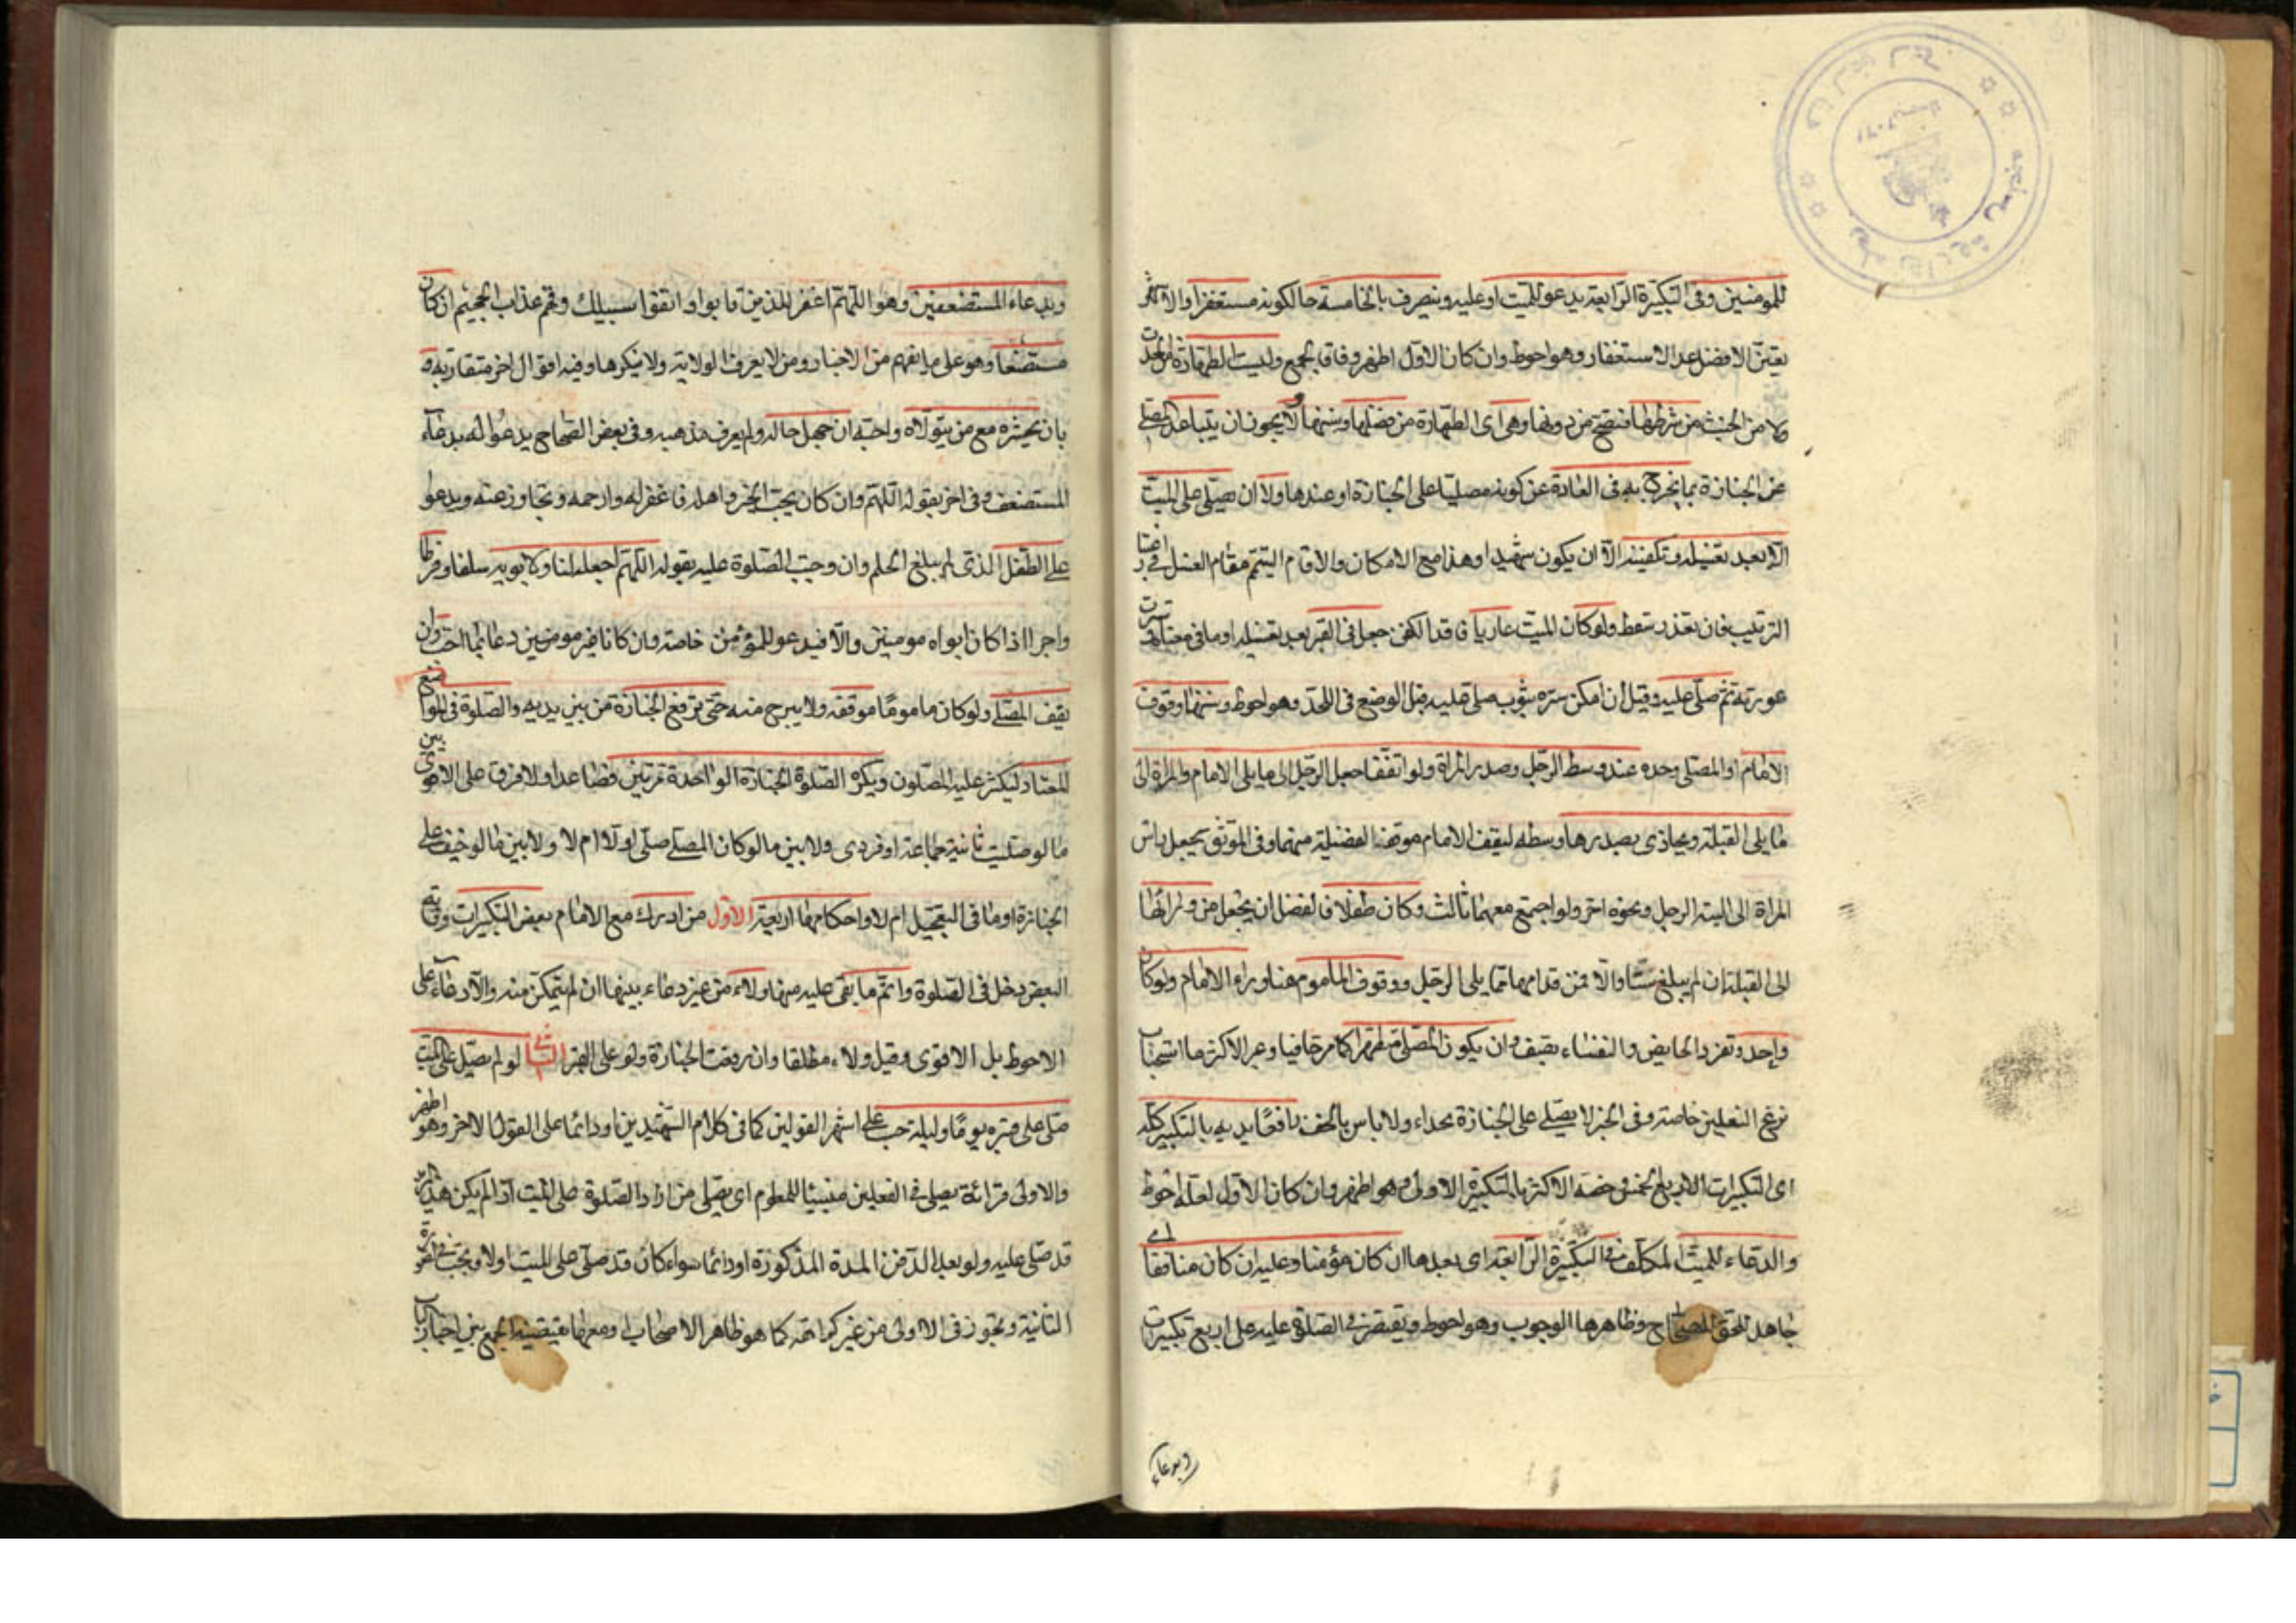 للمؤمنين وفى التكبيرة الرابعة يدعو للميت او عليه وينصرف بالخامسة حالكونه مستغفرا والاكثر
يعين الافضل عدا الاستغفار وهو احوط وان كان الاول اظهر وفاقا لجمع وليست الطهارة من الحدث
ولا من الخبث من شرطها فتصح من دونها وهى اى الطهارة من فضلها وسننها ولا يجوز ان يتباعد المصلى
عن الجنازة بما يخرج به فى العادة عن كونه مصليا على الجنازة او عندها ولا ان يصلى على الميت
الا بعد تغسيله وتكفينه الا ان يكون شهيدا وهذا مع الامكان والا قام التيمم مقام الغسل فى
الترتيب فان تعذر سقط ولو كان الميت عاريا فاقد الكفن جعل فى القبر بعد تغسيله او ما فى معناه وسترت
عورته ثم صلى عليه وقيل ان امكن ستره بثوب صلى عليه قبل الوضع فى اللحد وهو احوط وسننها وقوف
الامام او المصلى وحده عند وسط الرجل وصدر المراة ولو اتفقا جعل الرجل الى ما يلى الامام والمراة الى
ما يلى القبلة ويحاذى بصدرها وسطه ليقف الامام موقف الفضيلة منهما وفى الموثق يجعل راس
المراة الى الية الرجل ونحوه اخر ولو اجتمع معهما ثالث وكان طفلا فالفضل ان يجعل من ورائها
الى القبلة ان لم يبلغ ستا والا فمن قدامها مما يلى الرجل ووقوف الماموم هنا وراء الامام ولو كان
واحد وتفرد الحايض والنفساء بصف وان يكون المصلى متطهرا كما مر حافيا وعبر الاكثر ما استحباب
نزع النعلين خاصة وفى الخبر لا يصلى على الجنازة بحذاء ولا باس بالخف رافعا يديه بالتكبير كله
اى التكبيرات الاربع الخمس وخصه الاكثر بالتكبيرة الاولى وهو اظهر وان كان الاول لعله احوط
والدعاء للميت المكلف فى التكبيرة الرابعة اى بعدها ان كان مؤمنا وعليه ان كان منافقا اى
جاهد للحق للصحاح وظاهرها الوجوب وهو احوط ويقتصر فى الصلوة عليه على اربع تكبيرات
وبدعاء
وبدعاء المستضعفين وهو اللهم اغفر للذين تابوا واتبعوا سبيلك وقهم عذاب الجحيم ان كان
مستضعفا وهو على ما يفهم من الاخبار ومن لا يعرف الولاية ولا ينكرها وفيه اقوال اخر متقاربة و
بان يحشره مع من يتولاه واحبه ان جهل حاله ولم يعرف مذهبه وفى بعض الصحاح يدعو له بدعاء
المستضعف وفى اخر بقوله اللهم وان كان يحب الخير واهله فاغفر له وارحمه وتجاوز عنه ويدعو
على الطفل الذى لم يبلغ الحلم وان وجبت الصلوة عليه بقوله اللهم اجعله لنا ولابويه سلفا وفرطا
واجرا اذا كان ابواه مومنين والا فيدعو للمؤمن خاصة وان كانا غير مومنين دعا بما احب وان
يقف المصلى ولو كان ماموما موقفه ولا يبرح منه حتى ترفع الجنازة من بين يديه والصلوة فى المواضع
المعتاد ليكثر عليه المصلون ويكره الصلوة الجنازة الواحدة مرتين فصاعدا ولا فرق على الاقوى بين
ما لو صليت ثانية جماعة او فردى ولا بين ما لو كان المصلى صلى اولا ام لا ولا بين ما لو خيف على
الجنازة او ما فى التعجيل ام لا واحكامها اربعة الاول من ادرك مع الامام بعض التكبيرات وفاته
البعض دخل فى الصلوة واتم ما بقى عليه منها ولاء من غير دعاء بينها ان لم يتمكن منه والا دعا على
الاحوط بل الاقوى وقيل ولاء مطلقا وان رفعت الجنازة ولو على القبر الثانى لو لم يصل على الميت
صلى على قبره يوما وليلة حسب على اشهر القولين كما فى كلام الشهيدين او دائما على القول الاخر وهو اظهر
والاولى قراءة يصلى فى الفعلين مبنيا للمعلوم اى يصلى من اراد الصلوة على الميت اذا لم يكن هذا المريد
قد صلى عليه ولو بعد الدفن المدة المذكورة او دائما سواء كان قد صلى على الميت اولا ويجب فى
الثانية ويجوز فى الاولى من غير كراهة كما هو ظاهر الاصحاب ومعها يقتضيه الجمع بين اخبار